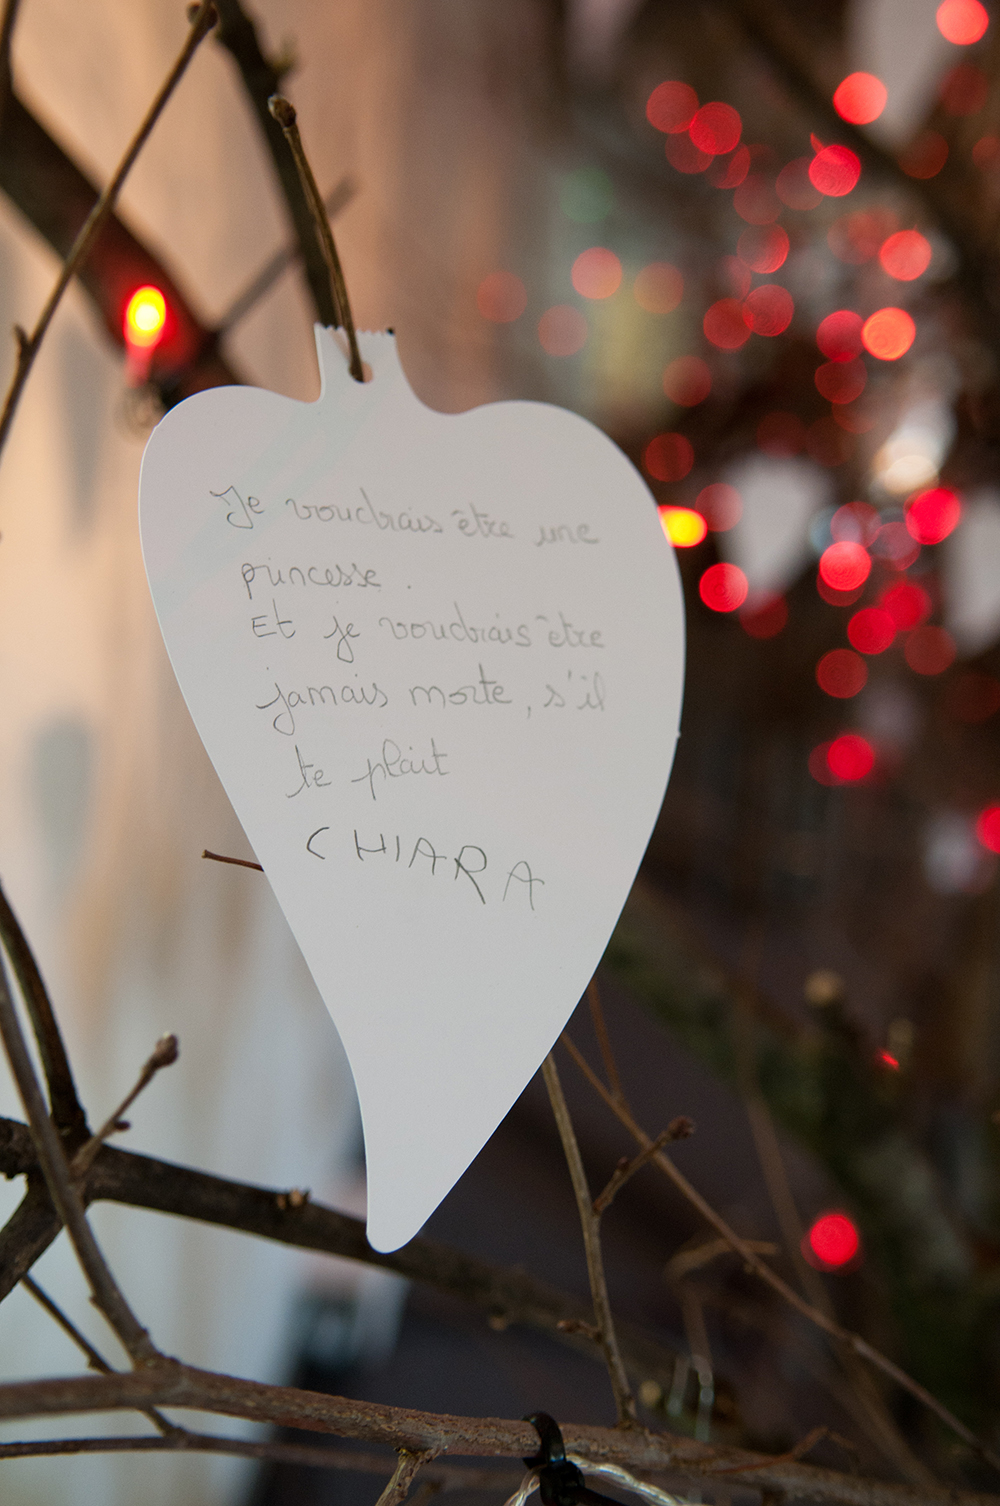 Je voudrais être une
princesse.
Et je voudrais être
jamais morte, s'il
te plait
CHIARA